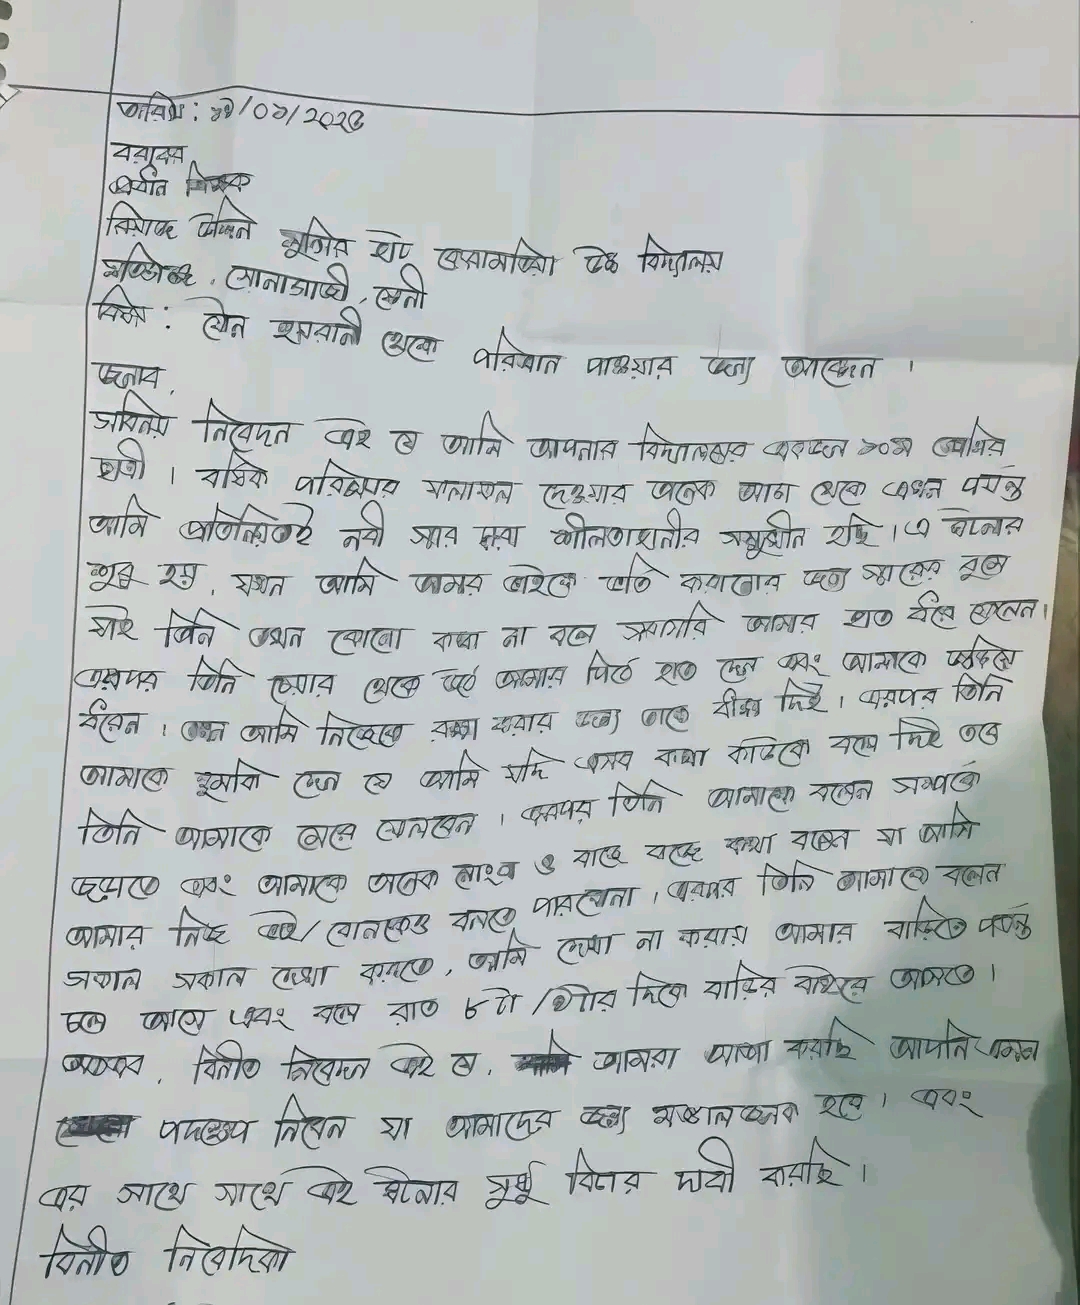 তারিখ: ১৯/০১/২০২৫
বরাবর
প্রধান শিক্ষক
উদ্দিন মুন্সির হাট উচ্চ বিদ্যালয়
সোনাগাজী, ফেনী
বিষয়: যৌন হয়রানী থেকে পরিত্রান পাওয়ার জন্য আবেদন।
জনাব,
সবিনয় নিবেদন এই যে আমি আপনার বিদ্যালয়ের একজন ১০ম শ্রেণির
ছাত্রী। বার্ষিক পরিক্ষার ফলাফল দেওয়ার অনেক আগ থেকে এখন পর্যন্ত
আমি প্রতিনিয়তই নবী স্যার দ্বারা শ্লীলতাহানীর সম্মুখীন হচ্ছি। এ ঘটনার
শুরু হয়, যখন আমি আমার ভাইকে ভর্তি করানোর জন্য স্যারের রুমে
যাই তিনি তখন কোনো কথা না বলে সরাসরি আমার হাত ধরে ফেলেন।
এরপর তিনি চেয়ার থেকে উঠে আমার পিঠে হাত দেন এবং আমাকে জড়িয়ে
ধরেন। তখন আমি নিজেকে রক্ষা করার জন্য তাকে ধাক্কা দিই। এরপর তিনি
আমাকে হুমকি দেন যে আমি যদি এসব কথা কাউকে বলে দিই তবে
তিনি আমাকে মেরে ফেলবেন। এরপর তিনি আমাকে বলেন সম্পর্কে
জড়াতে এবং আমাকে অনেক নোংরা ও বাজে বাজে কথা বলেন যা আমি
আমার নিজ ভাই/বোনকেও বলতে পারবোনা। এরপর তিনি আমাকে বলেন
সকাল সকাল দেখা করতে, আমি দেখা না করায় আমার বাড়িতে পর্যন্ত
চলে আসে এবং বলে রাত ৮টা /৯টার দিকে বাড়ির বাইরে আসতে।
অতএব, বিনীত নিবেদন এই যে, আমরা আশা করছি আপনি এমন
পদক্ষেপ নিবেন যা আমাদের জন্য মঙ্গলজনক হবে। এবং
এর সাথে সাথে এই ঘটনার সুষ্ঠু বিচার দাবী করছি।
বিনীত নিবেদিকা